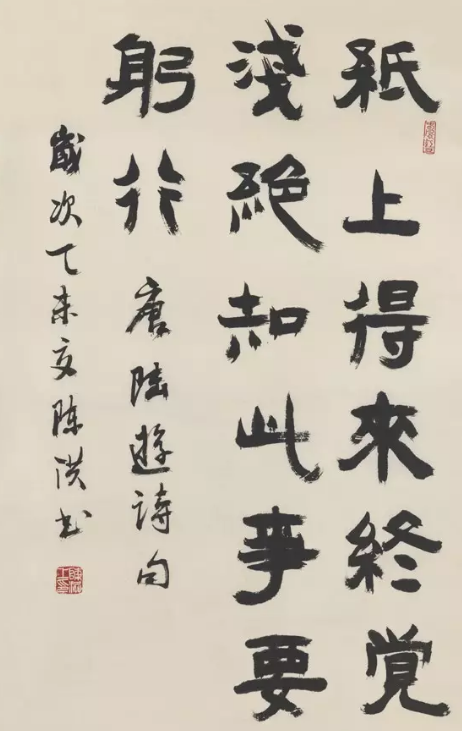 紙上得來終覚
淺絕知此事要
躬行 唐陸遊詩句
歲次乙未夏陳洪书